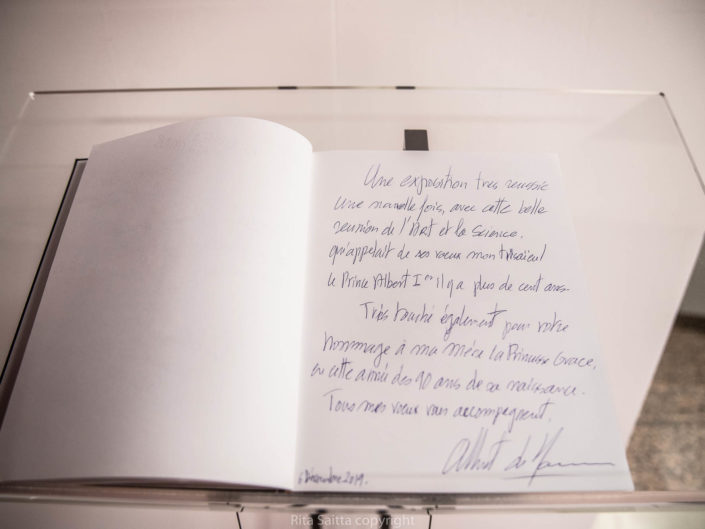 Une exposition très réussie
une nouvelle fois, avec cette belle
reunion de l'Art et la Science.
qu'appelait de ses vœux mon trisaïeul
le Prince Albert Ier il y a plus de cent ans.
Très touché également pour votre
hommage à ma mère la Princesse Grace,
en cette année des 90 ans de sa naissance.
Tous mes vœux vous accompagnent.
Albert de
6 Décembre 2019.
Rita Saitta copyright